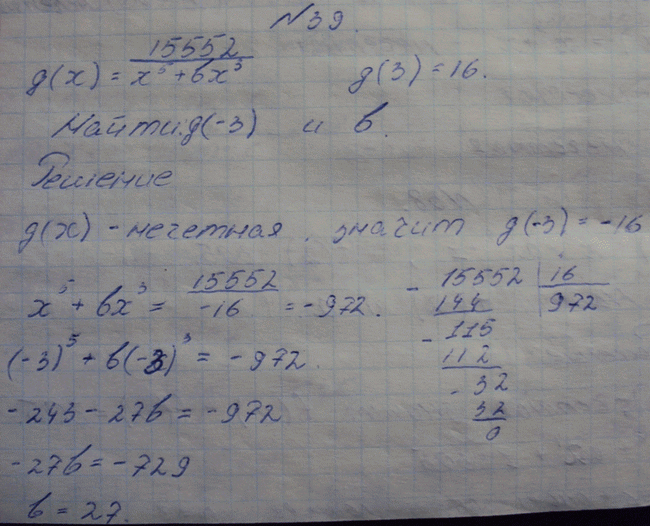 №39.
g(x) = 15552 / x⁵ + bx³ g(3) = 16.
Найти g(-3) и b.
Решение
g(x) - нечетная, значит g(-3) = -16
x⁵ + bx³ = 15552 / -16 = -972.
(-3)⁵ + b(-3)³ = -972.
-243 - 27b = -972
-27b = -729
b = 27.
- 15552 | 16
144 972
- 115
112
- 32
32
0